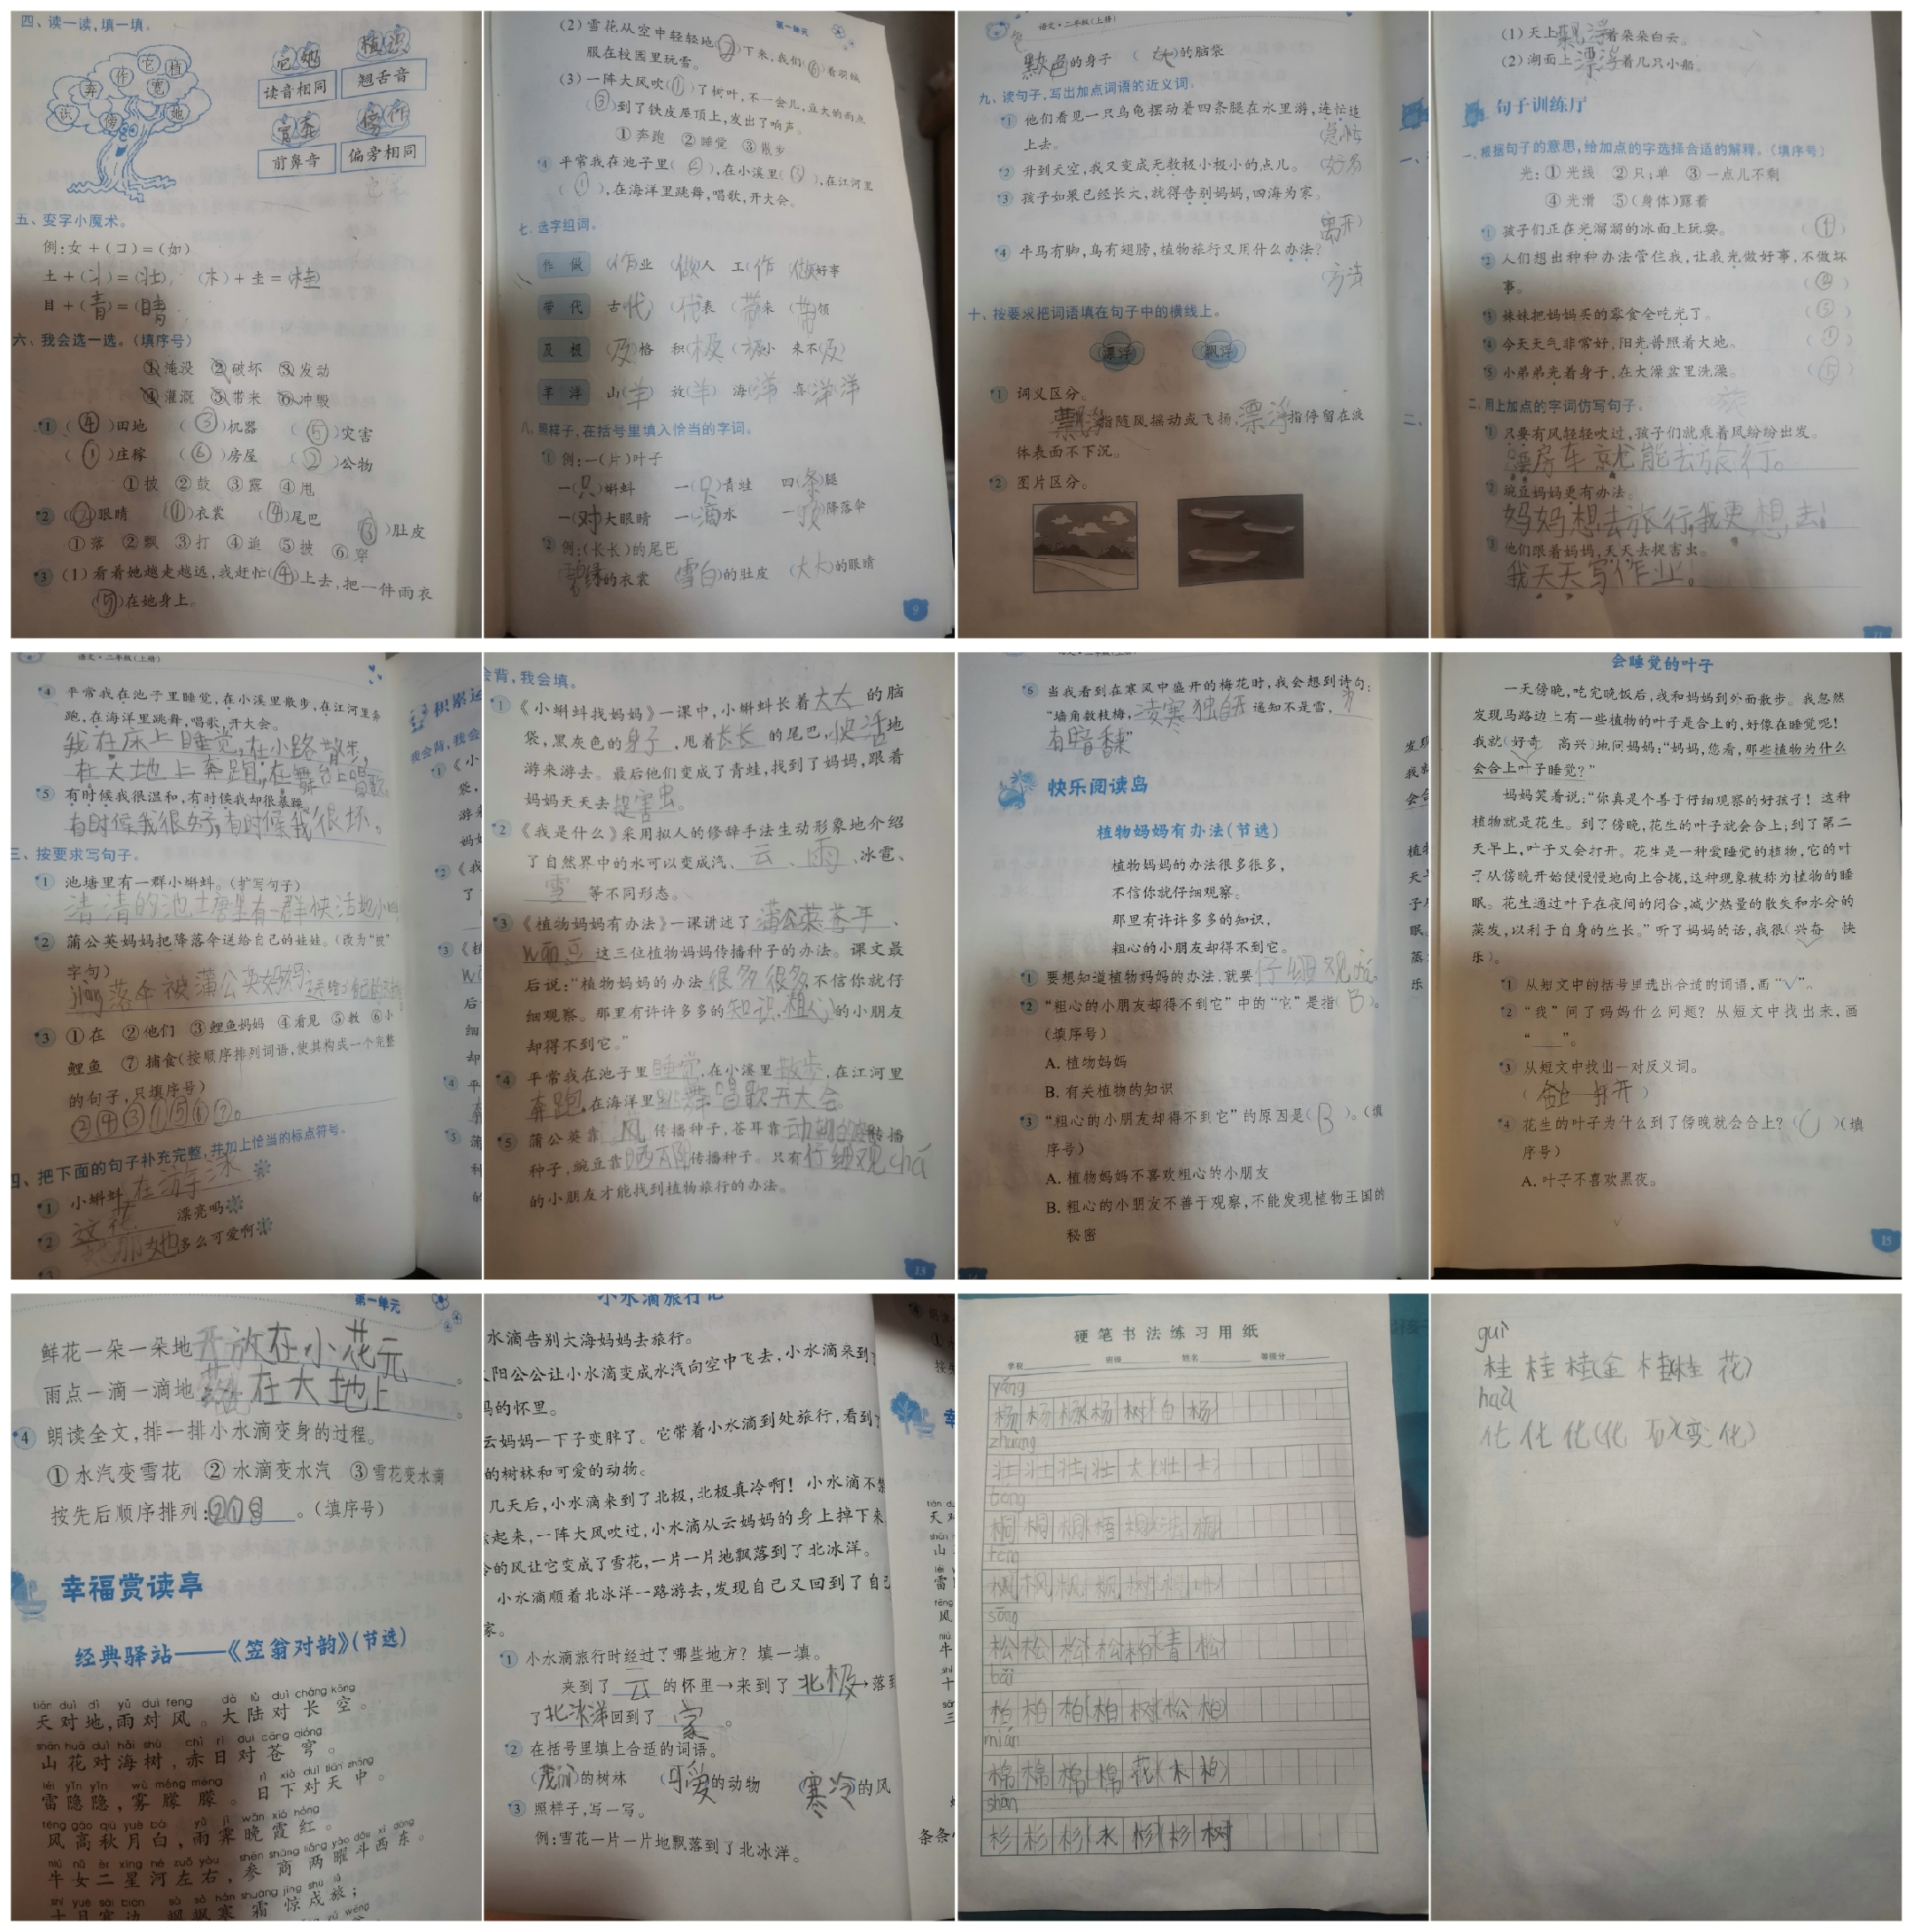 四、读一读,填一填。
读音相同 翘舌音
前鼻音 偏旁相同
五、变字小魔术。
例:女+(口)=(如)
土+(斗)=(壮) (木)+圭=(桂)
目+(青)=(睛)
六、我会选一选。(填序号)
①淹没 ②破坏 ③发动
④灌溉 ⑤带来 ⑥冲毁
1 (④)田地 (③)机器 (⑤)灾害
(①)庄稼 (⑥)房屋 (②)公物
①披 ②鼓 ③露 ④甩
2 (②)眼睛 (①)衣裳 (④)尾巴 (③)肚皮
①落 ②飘 ③打 ④追 ⑤披 ⑥穿
3 (1)看着她越走越远,我赶忙(④)上去,把一件雨衣
(⑤)在她身上。
第一单元
(2)雪花从空中轻轻地(②)下来,我们(⑥)着羽绒
服在校园里玩雪。
(3)一阵大风吹(①)了树叶,不一会儿,豆大的雨点
(③)到了铁皮屋顶上,发出了响声。
①奔跑 ②睡觉 ③散步
4 平常我在池子里(②),在小溪里(③),在江河里
(①),在海洋里跳舞,唱歌,开大会。
七、选字组词。
作 做 (作)业 (做)人 工(作) (做)好事
带 代 古(代) (代)表 (带)来 (带)领
及 极 (及)格 积(极) (极)小 来不(及)
羊 洋 山(羊) 放(羊) 海(洋) 喜洋洋
八、照样子,在括号里填入恰当的字词。
1 例:一(片)叶子
一(只)蝌蚪 一(只)青蛙 四(条)腿
一(对)大眼睛 一(滴)水 一(顶)降落伞
2 例:(长长)的尾巴
(碧绿)的衣裳 (雪白)的肚皮 (大大)的眼睛
9
语文·二年级(上册)
的身子 (大)的脑袋
九、读句子,写出加点词语的近义词。
1 他们看见一只乌龟摆动着四条腿在水里游,连忙追
上去。 急忙
2 升到天空,我又变成无数极小极小的点儿。 好多
3 孩子如果已经长大,就得告别妈妈,四海为家。
离开
4 牛马有脚,鸟有翅膀,植物旅行又用什么办法?
方法
十、按要求把词语填在句子中的横线上。
漂浮 飘浮
1 词义区分。
飘浮指随风摇动或飞扬,漂浮指停留在液
体表面不下沉。
2 图片区分。
(1)天上飘浮着朵朵白云。
(2)湖面上漂浮着几只小船。
句子训练厅
一、根据句子的意思,给加点的字选择合适的解释。(填序号)
光:①光线 ②只;单 ③一点儿不剩
④光滑 ⑤(身体)露着
1 孩子们正在光溜溜的冰面上玩耍。 (④)
2 人们想出种种办法管住我,让我光做好事,不做坏
事。 (②)
3 妹妹把妈妈买的零食全吃光了。 (③)
4 今天天气非常好,阳光普照着大地。 (①)
5 小弟弟光着身子,在大澡盆里洗澡。 (⑤)
二、用上加点的字词仿写句子。
1 只要有风轻轻吹过,孩子们就乘着风纷纷出发。
房车就能去旅行。
2 豌豆妈妈更有办法。
妈妈想去旅行,我更想去!
3 他们跟着妈妈,天天去捉害虫。
我天天写作业。
语文·二年级(上册)
4 平常我在池子里睡觉,在小溪里散步,在江河里奔
跑,在海洋里跳舞,唱歌,开大会。
我在床上睡觉,在小路散步,
在大地上奔跑,在舞台上唱歌。
5 有时候我很温和,有时候我却很暴躁。
有时候我很好,有时候我很坏。
三、按要求写句子。
1 池塘里有一群小蝌蚪。(扩写句子)
清清的池塘里有一群快活地小
2 蒲公英妈妈把降落伞送给自己的娃娃。(改为“被”
字句)
jiàng落伞被蒲公英妈妈送给了自己的娃娃
3 ①在 ②他们 ③鲤鱼妈妈 ④看见 ⑤教 ⑥小
鲤鱼 ⑦捕食(按顺序排列词语,使其构成一个完整
的句子,只填序号)
②④③①⑤⑥⑦。
四、把下面的句子补充完整,并加上恰当的标点符号。
1 小蝌蚪在游
2 这花 漂亮吗
多么可爱啊
会背,我会填。
1 《小蝌蚪找妈妈》一课中,小蝌蚪长着大大的脑
袋,黑灰色的身子,甩着长长的尾巴,快活地
游来游去。最后他们变成了青蛙,找到了妈妈,跟着
妈妈天天去捉害虫。
2 《我是什么》采用拟人的修辞手法生动形象地介绍
了自然界中的水可以变成汽、云、雨、冰雹、
雪等不同形态。
3 《植物妈妈有办法》一课讲述了蒲公英苍耳、
wān豆这三位植物妈妈传播种子的办法。课文最
后说:“植物妈妈的办法很多很多,不信你就仔
细观察。那里有许许多多的知识,粗心的小朋友
却得不到它。”
4 平常我在池子里睡觉,在小溪里散步,在江河里
奔跑,在海洋里跳舞唱歌开大会。
5 蒲公英靠风传播种子,苍耳靠动物的传播
种子,豌豆靠晒太阳传播种子。只有仔细观chá
的小朋友才能找到植物旅行的办法。
13
6 当我看到在寒风中盛开的梅花时,我会想到诗句:
“墙角数枝梅,凌寒独自开。遥知不是雪,为
有暗香来”
快乐阅读岛
植物妈妈有办法(节选)
植物妈妈的办法很多很多,
不信你就仔细观察。
那里有许许多多的知识,
粗心的小朋友却得不到它。
1 要想知道植物妈妈的办法,就要仔细观察
2 “粗心的小朋友却得不到它”中的“它”是指(B)。
(填序号)
A. 植物妈妈
B. 有关植物的知识
3 “粗心的小朋友却得不到它”的原因是(B)。(填
序号)
A. 植物妈妈不喜欢粗心的小朋友
B. 粗心的小朋友不善于观察,不能发现植物王国的
秘密
会睡觉的叶子
一天傍晚,吃完晚饭后,我和妈妈到外面散步。我忽然
发现马路边上有一些植物的叶子是合上的,好像在睡觉呢!
我就(好奇 高兴)地问妈妈:“妈妈,您看,那些植物为什么
会合上叶子睡觉?”
妈妈笑着说:“你真是个善于仔细观察的好孩子!这种
植物就是花生。到了傍晚,花生的叶子就会合上;到了第二
天早上,叶子又会打开。花生是一种爱睡觉的植物,它的叶
子从傍晚开始便慢慢地向上合拢,这种现象被称为植物的睡
眠。花生通过叶子在夜间的闭合,减少热量的散失和水分的
蒸发,以利于自身的生长。”听了妈妈的话,我很(兴奋 快
乐)。
1 从短文中的括号里选出合适的词语,画“√”。
2 “我”问了妈妈什么问题?从短文中找出来,画
“____”。
3 从短文中找出一对反义词。
(合上 打开)
4 花生的叶子为什么到了傍晚就会合上?(C)(填
序号)
A. 叶子不喜欢黑夜。
15
第一单元
鲜花一朵一朵地开放在小花元。
雨点一滴一滴地落在大地上。
4 朗读全文,排一排小水滴变身的过程。
①水汽变雪花 ②水滴变水汽 ③雪花变水滴
按先后顺序排列:②①③。(填序号)
幸福赏读亭
经典驿站——《笠翁对韵》(节选)
tiān duì dì yǔ duì fēng dà lù duì cháng kōng
天对地,雨对风。大陆对长空。
shān huā duì hǎi shù chì rì duì cāng qióng
山花对海树,赤日对苍穹。
léi yǐn yǐn wù méng méng rì xià duì tiān zhōng
雷隐隐,雾朦朦。日下对天中。
fēng gāo qiū yuè bái yǔ jì wǎn xiá hóng
风高秋月白,雨霁晚霞红。
niú nǚ èr xīng hé zuǒ yòu shēn shāng liǎng yào dǒu xī dōng
牛女二星河左右,参商两曜斗西东。
shí yuè sài biān sà sà hán shuāng jīng shù lǚ
十月塞边,飒飒寒霜惊戍旅;
小水滴旅行记
水滴告别大海妈妈去旅行。
阳公公让小水滴变成水汽向空中飞去,小水滴来到了
妈的怀里。
云妈妈一下子变胖了。它带着小水滴到处旅行,看到了
的树林和可爱的动物。
几天后,小水滴来到了北极,北极真冷啊!小水滴不禁
起来,一阵大风吹过,小水滴从云妈妈的身上掉下来
冷的风让它变成了雪花,一片一片地飘落到了北冰洋。
小水滴顺着北冰洋一路游去,发现自己又回到了自己
家。
1 小水滴旅行时经过了哪些地方?填一填。
来到了云的怀里→来到了北极→落到
了北冰洋回到了家。
2 在括号里填上合适的词语。
(茂密)的树林 (可爱)的动物 (寒冷)的风
3 照样子,写一写。
例:雪花一片一片地飘落到了北冰洋。
硬笔书法练习用纸
学校 班级 姓名 等级分
yáng
杨杨杨杨树白杨
zhuàng
壮壮壮壮大壮士
tóng
桐桐桐梧桐
fēng
枫枫枫枫树枫叶
sōng
松松松松柏青松
bǎi
柏柏柏柏树松柏
mián
棉棉棉棉花木棉
shān
杉杉杉水杉杉树
guì
桂 桂 桂(金 桂桂 花)
huà
化 化 化(化 石变 化)